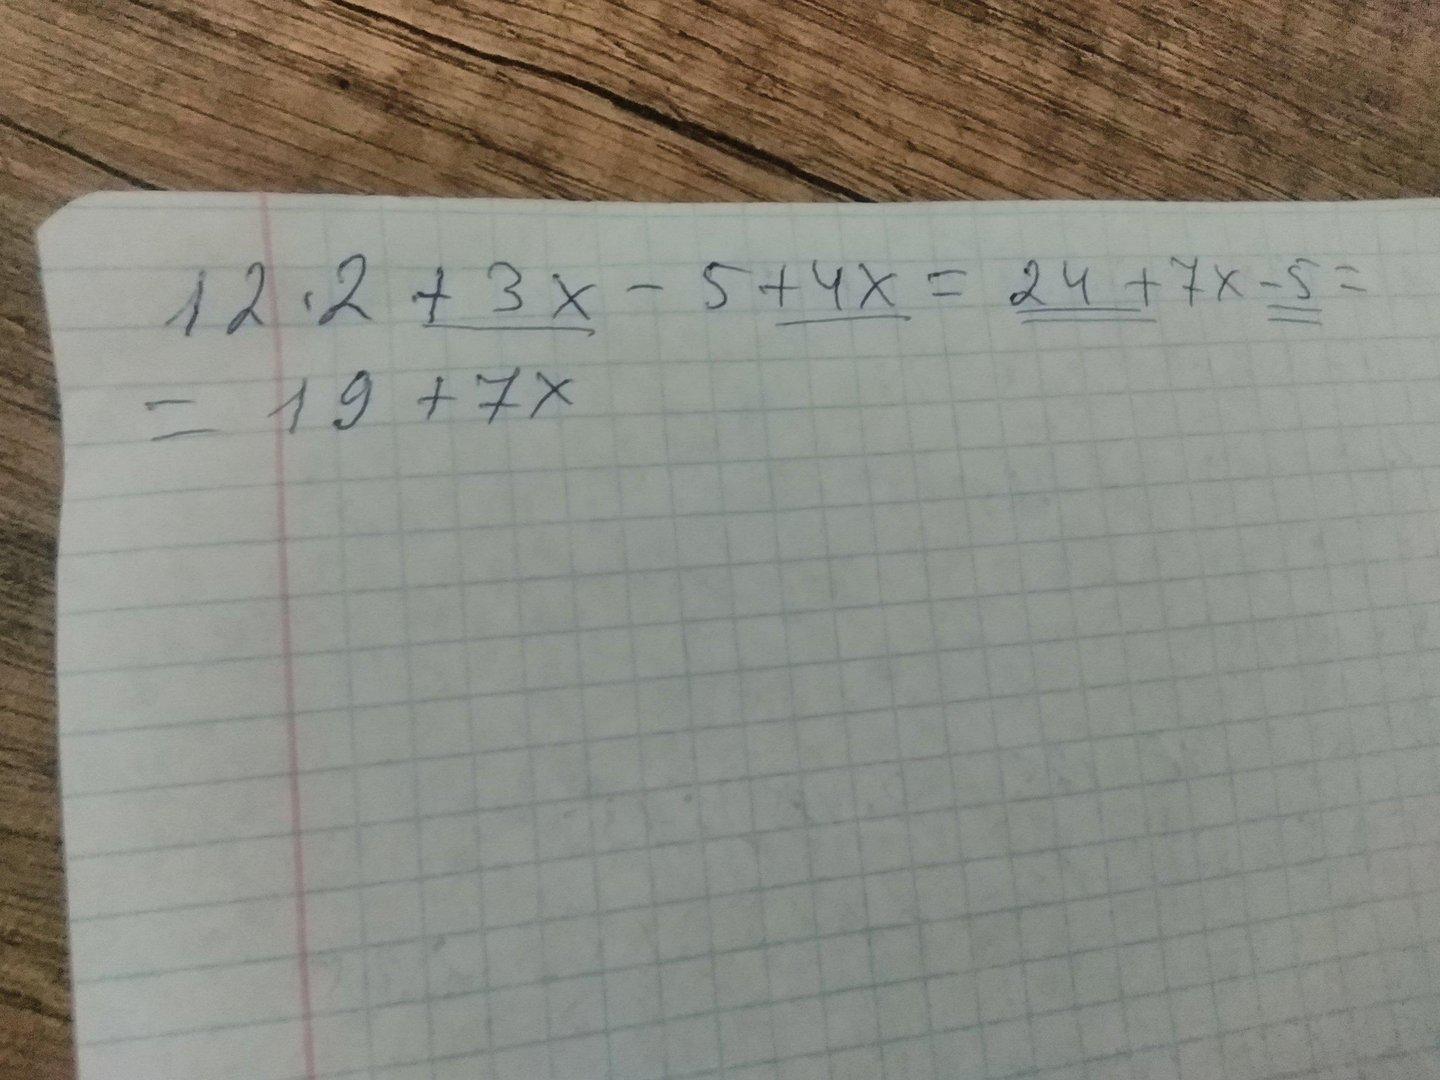 12·2 + 3x - 5 + 4x = 24 + 7x - 5 =
= 19 + 7x